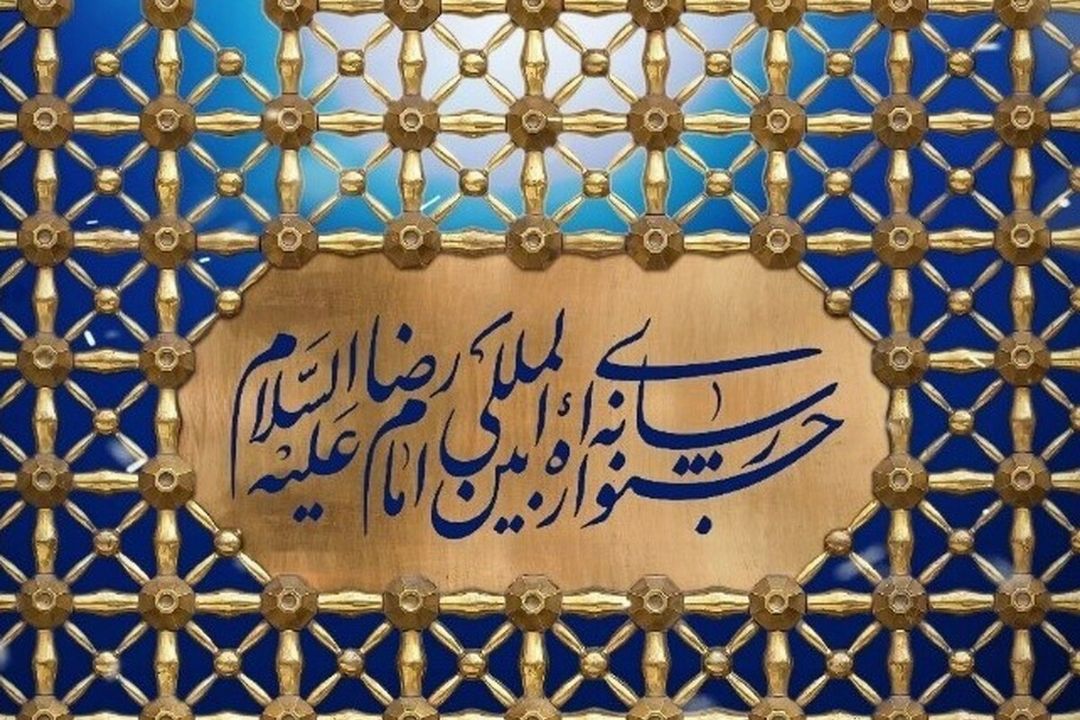 جشنواره رسانه‌ای بین المللی امام رضا علیه السّلام